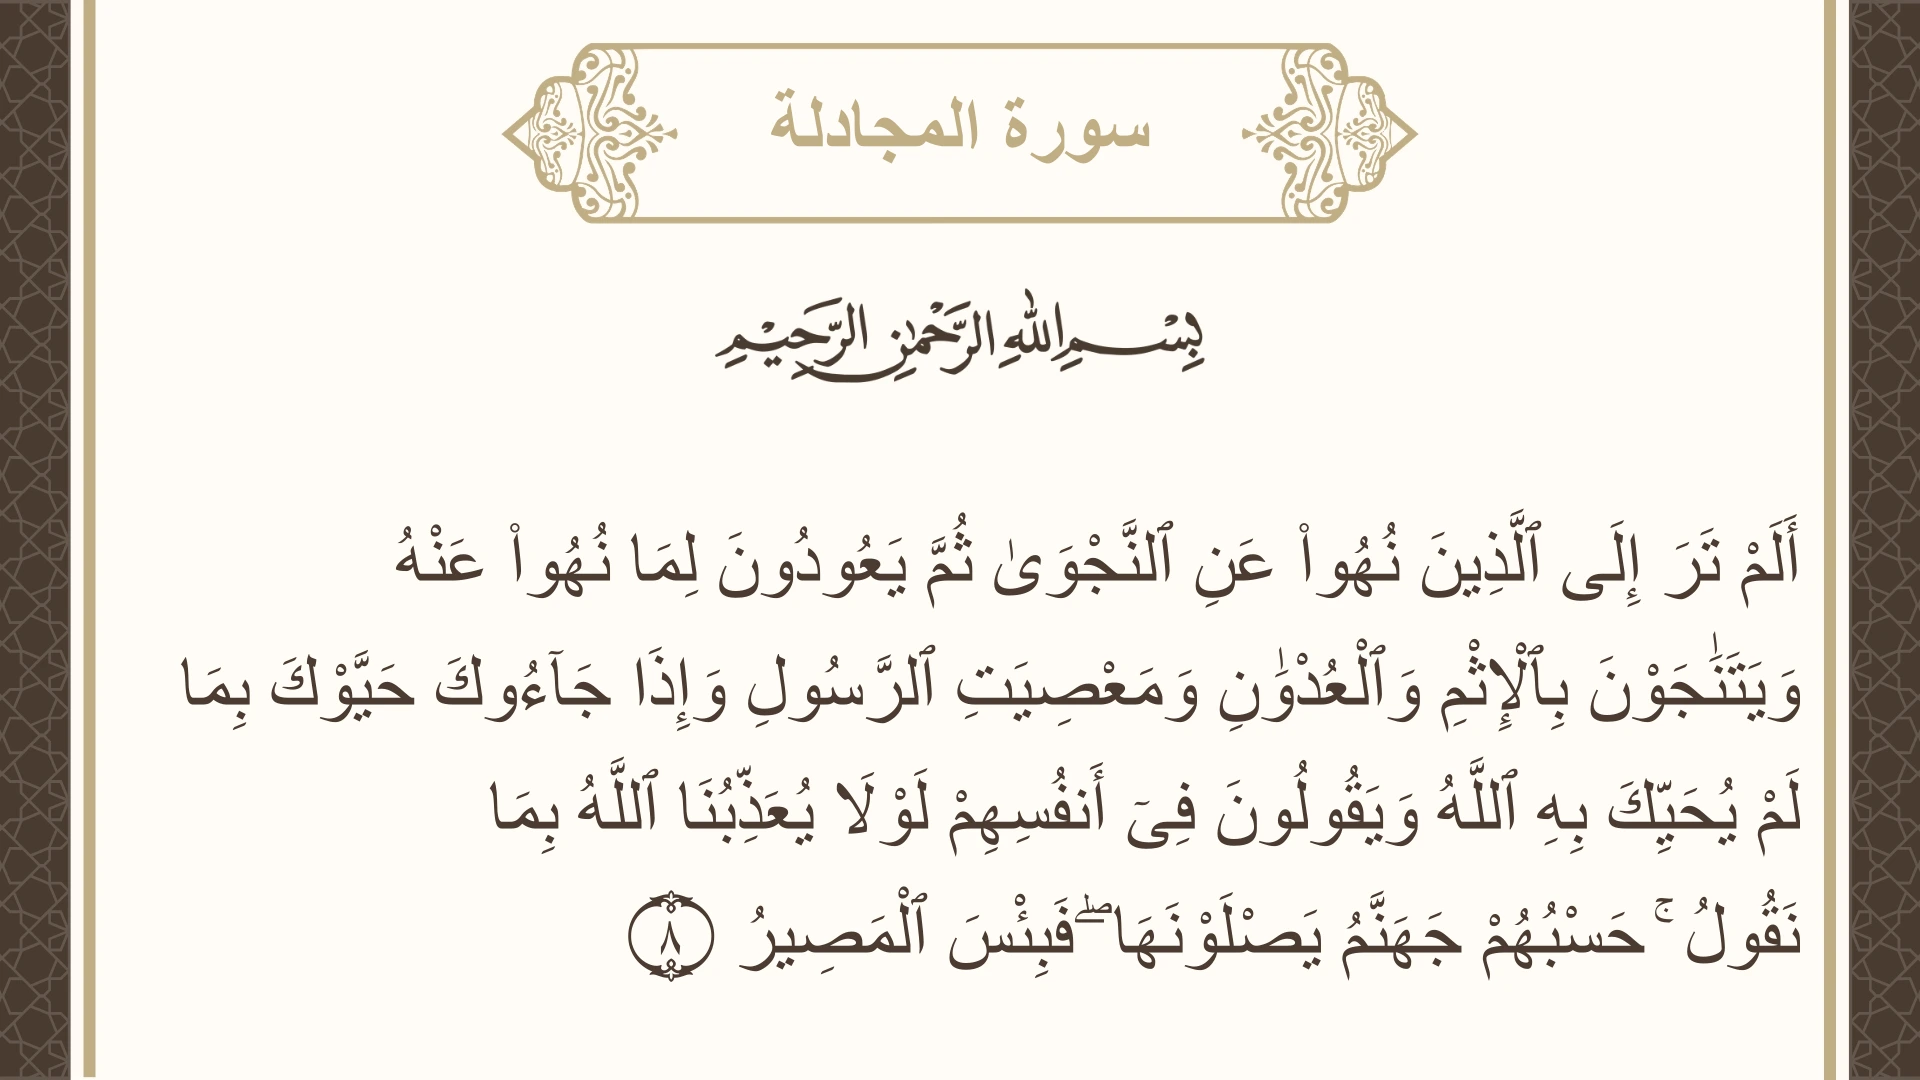 سورة المجادلة
بِسْمِ اللهِ الرَّحْمٰنِ الرَّحِيْمِ
أَلَمْ تَرَ إِلَى ٱلَّذِينَ نُهُوا۟ عَنِ ٱلنَّجْوَىٰ ثُمَّ يَعُودُونَ لِمَا نُهُوا۟ عَنْهُ
وَيَتَنَٰجَوْنَ بِٱلْإِثْمِ وَٱلْعُدْوَٰنِ وَمَعْصِيَتِ ٱلرَّسُولِ وَإِذَا جَآءُوكَ حَيَّوْكَ بِمَا
لَمْ يُحَيِّكَ بِهِ ٱللَّهُ وَيَقُولُونَ فِىٓ أَنفُسِهِمْ لَوْلَا يُعَذِّبُنَا ٱللَّهُ بِمَا
نَقُولُ ۚ حَسْبُهُمْ جَهَنَّمُ يَصْلَوْنَهَا ۖ فَبِئْسَ ٱلْمَصِيرُ ٨